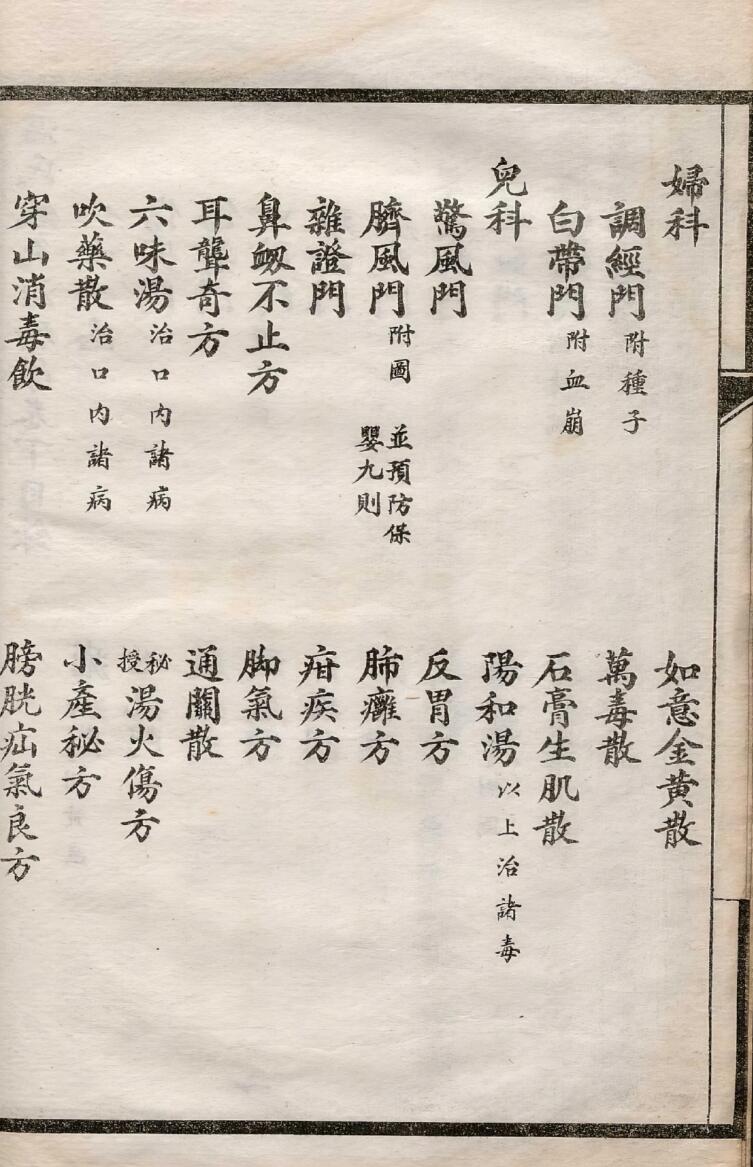 婦科
調經門 附種子
白帶門 附血崩
兒科
驚風門
臍風門 附圖 並預防保嬰九則
雜證門
鼻衂不止方
耳聾奇方
六味湯 治口內諸病
吹藥散 治口內諸病
穿山消毒飲
如意金黄散
萬毒散
石膏生肌散
陽和湯 以上治諸毒
反胃方
肺癰方
疳疾方
脚氣方
通關散
秘授湯火傷方
小產秘方
膀胱疝氣良方